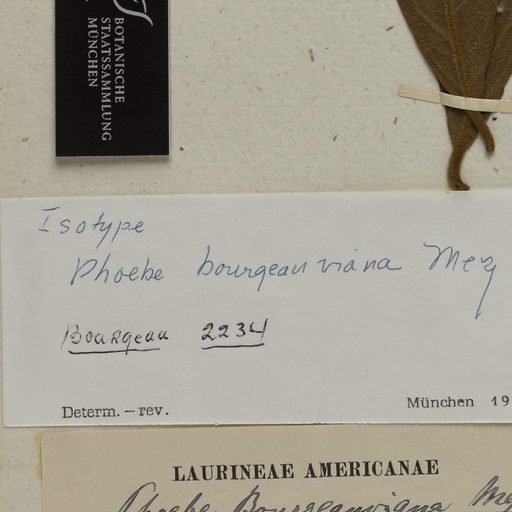 BOTANISCHE
STAATSSAMMLUNG
MÜNCHEN
Isotype
Phoebe bourgeauviana Mez
Bourgeau 2234
Determ. – rev.
München 19
LAURINEAE AMERICANAE
Phoebe Bourgeauviana Mez